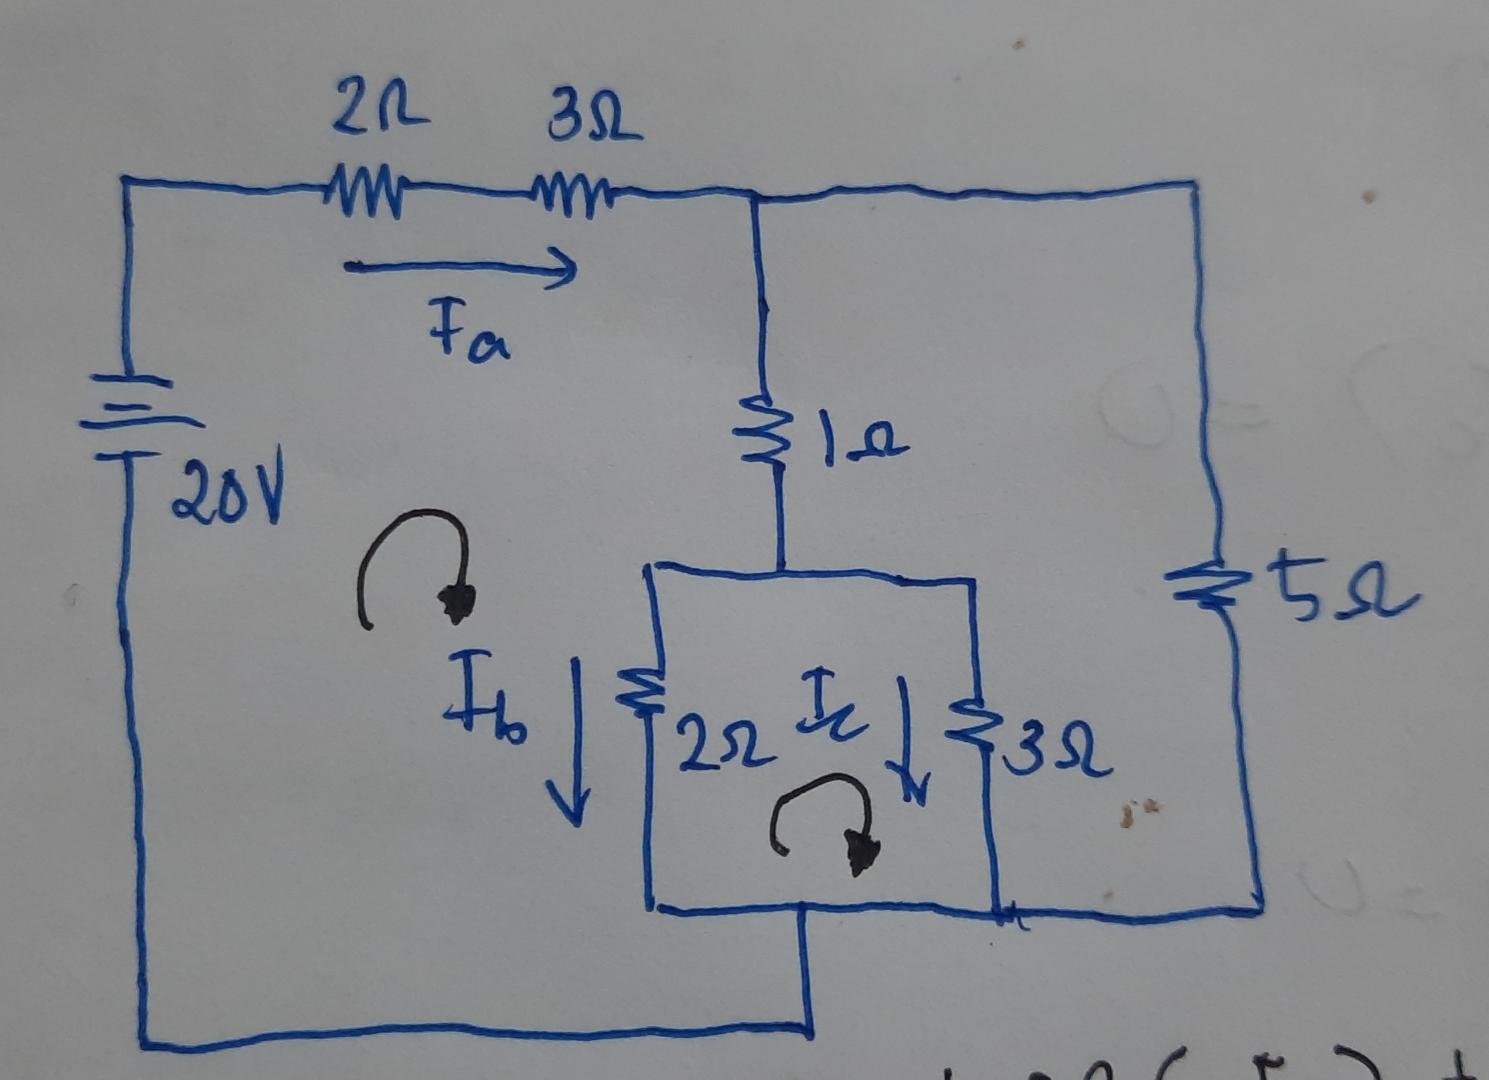 2Ω 3Ω
Ia
1Ω
20V
5Ω
Ib
2Ω
Ic
3Ω